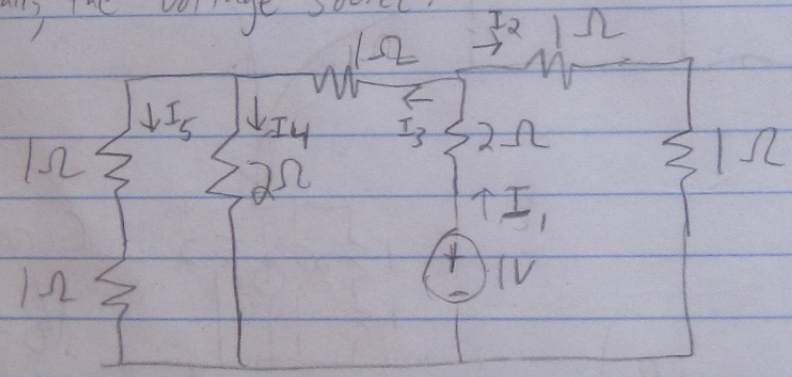 the voltage source.
I2
1Ω
1Ω
I5
I4
I3
2Ω
1Ω
1Ω
2Ω
I1
1Ω
+
1V
-